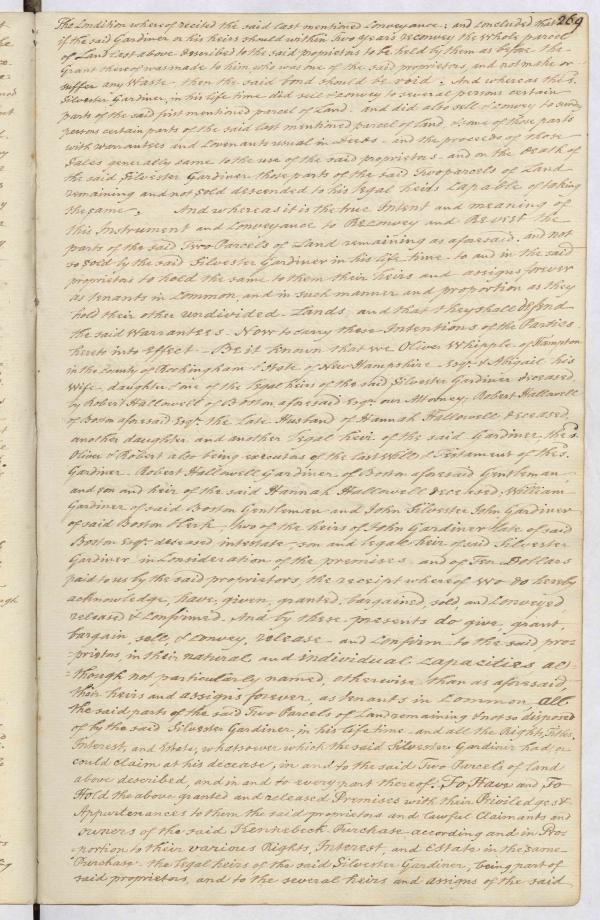 269
The Condition whereof recited the said last mentioned Conveyance; and concluded that
if the said Gardiner or his heirs should within two years reconvey the whole parcel
of Land last above described to the said proprietors to be held by them as before the
Grant thereof was made to him who was one of the said proprietors, and not make or
suffer any Waste, then the said bond should be void. And whereas the sd.
Silvester Gardiner, in his life time did sell & convey to several persons certain
parts of the said first mentioned parcel of Land, and did also sell & convey to sundry
persons certain parts of the said last mentioned parcel of land, some of those parts
with warrantees and Covenants usual in deeds – and the proceeds of those
Sales generally came to the use of the said proprietors – and on the death of
the said Silvester Gardiner those parts of the said Two parcels of Land
remaining and not sold descended to his legal heirs capable of taking
the same; And whereas it is the true Intent and meaning of
this Instrument and Conveyance to Reconvey and Revest the
parts of the said Two Parcels of Land remaining as aforesaid, and not
so sold by the said Silvester Gardiner in his life time – to and in the said
proprietors to hold the same to them their heirs and assigns forever
as tenants in Common, and in such manner and proportion as they
hold their other undivided Lands, and that they shall defend
the said Warrantees – Now to carry these Intentions of the Parties
hereto into Effect – Be it Known that we Oliver Whipple of Hampton
in the County of Rockingham & State of New Hampshire Esqr. & Abigail his
Wife, daughter & one of the legal heirs of the said Silvester Gardiner deceased,
by Robert Hallowell of Boston, aforesaid Esqr. our Attorney, Robert Hallowell
of Boston aforesaid Esqr. the late Husband of Hannah Hallowell deceased,
another daughter and another legal heir of the said Gardiner, the sd.
Oliver & Robert also being executors of the last Will & Testament of the sd.
Gardiner. Robert Hallowell Gardiner of Boston aforesaid Gentleman,
and son and heir of the said Hannah Hallowell deceased; William
Gardiner of said Boston Gentleman and John Silvester John Gardiner
of said Boston Clerk, two of the heirs of John Gardiner late of said
Boston Esqr. deceased intestate, son and legal heir of said Silvester
Gardiner in Consideration of the premises – and of Ten Dollars
paid to us by the said proprietors, the receipt whereof we do hereby
acknowledge, have, given, granted, bargained, sold, and Conveyed,
released & Confirmed. And by these presents do give, grant,
bargain, sell, & Convey, release – and Confirm to the said pro-
=prietors, in their natural and individual capacities al-
=though not particularly named, otherwise than as aforesaid
their heirs and assigns forever, as tenants in Common, all
the said parts of the said Two Parcels of Land remaining & not so disposed
of by the said Silvester Gardiner, in his life time – and all the Right, Title,
Interest, and Estate, whatsoever which the said Silvester Gardiner had or
could claim at his decease, in and to the said Two Parcels of land
above described, and in and to every part thereof. To Have and To
Hold the above granted and released Premises with their Priviledges &
Appurtenances to them the said proprietors and lawful Claimants and
owners of the said Kennebeck Purchase according and in Pro-
=portion to their various Rights, Interest, and Estate in the same
Purchase – the legal heirs of the said Silvester Gardiner, being part of
said proprietors, and to the several heirs and assigns of the said